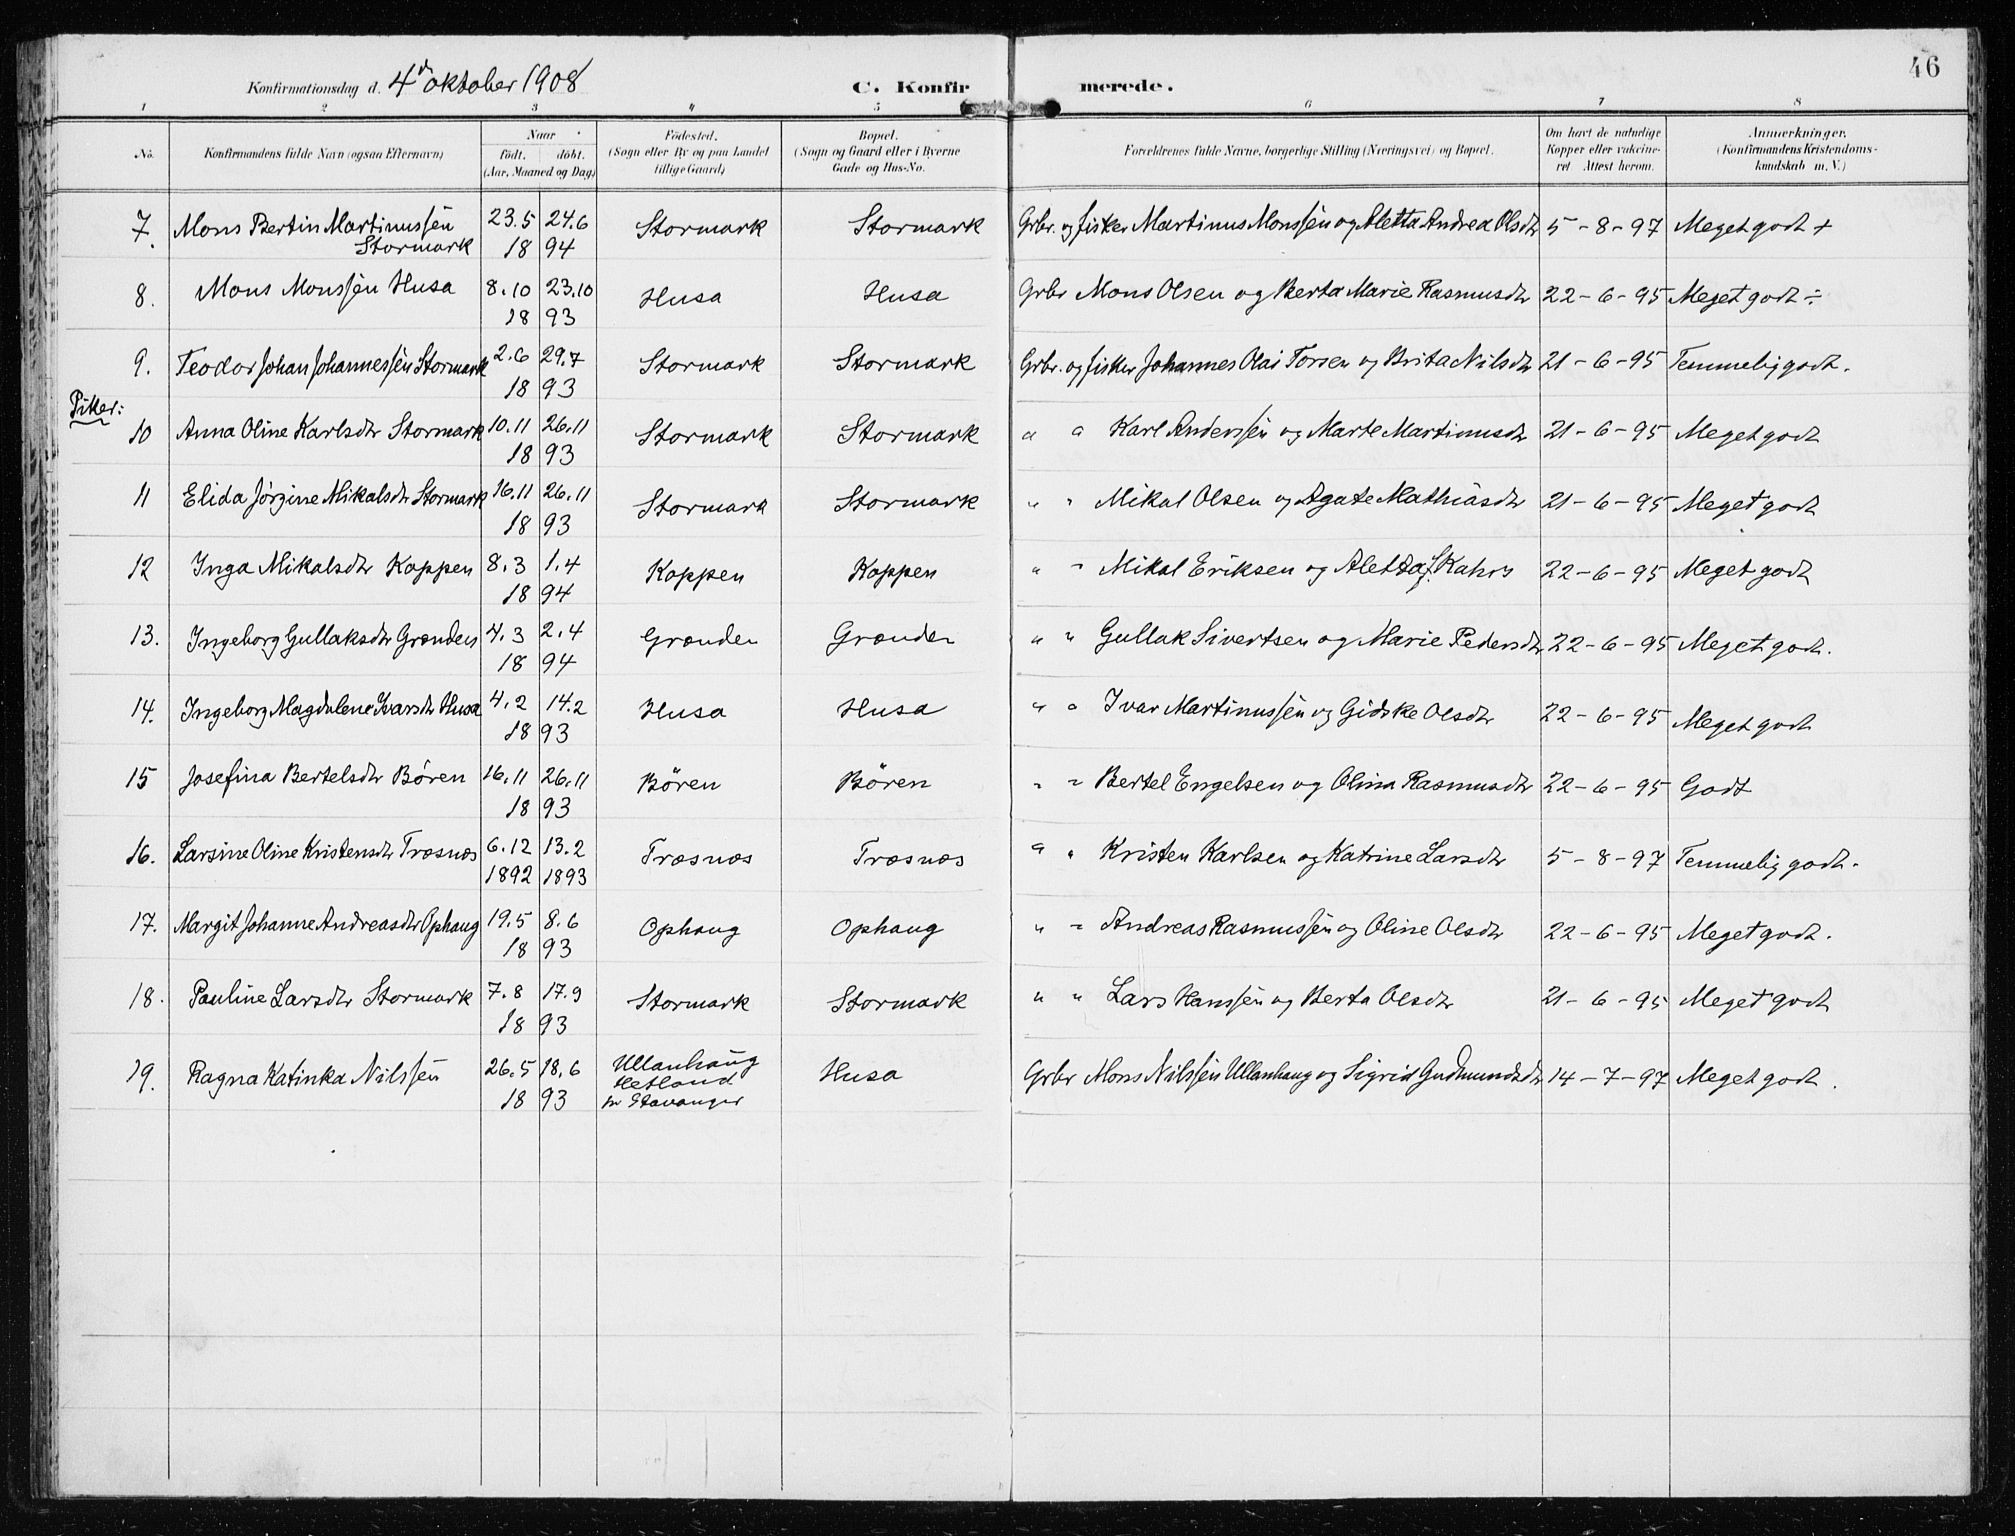 46
Konfirmationsdag d. 4de oktober 1908 C. Konfirmerede.
1 2 3 4 5 6 7 8
No. Konfirmandens fulde Navn (ogsaa Efternavn) Naar født. døbt. (Aar, Maaned og Dag) Fødested. (Sogn eller By og paa Landet tillige Gaard) Bopæl. (Sogn og Gaard eller i Byerne Gade og Hus-No. Forældrenes fulde Navne, borgerlige Stilling (Næringsvei) og Bopæl. Om havt de naturlige Kopper eller vakcineret Attest herom. Anmerkninger. (Konfirmandens Kristendomskundskab m. V.)
7. Mons Bertin Martinussen Stormark 23.5 1894 24.6 Stormark Stormark Grbr. og fisker Martinus Monssen og Aletta Andrea Olsdtr 5-8-97 Meget godt +
8. Mons Monssen Husa 8.10 23.10 1893 Husa Husa Grbr Mons Olsen og Berta Marie Rasmusdtr 22-6-95 Meget godt ÷
9. Teodor Johan Johannessen Stormark 2.6 29.7 1893 Stormark Stormark Grbr. og fisker Johannes Olai Torsen og Brita Nilsdtr 21-6-95 Temmelig godt.
Piker:
10 Anna Oline Karlsdtr Stormark 10.11 26.11 1893 Stormark Stormark " " Karl Anderssen og Marte Martinusdtr 21-6-95 Meget godt
11 Elida Jørgine Mikalsdtr Stormark 16.11 26.11 1893 Stormark Stormark " " Mikal Olsen og Agate Mathiasdtr 21-6-95 Meget godt
12 Inga Mikalsdtr Koppen 8.3 1.4 1894 Koppen Koppen " " Mikal Eriksen og Aletta J. Kahrs 22-6-95 Meget godt
13. Ingeborg Gullaksdtr Grønden 4.3 2.4 1894 Grønden Grønden " " Gullak Sivertsen og Marie Pedersdtr 22-6-95 Meget godt.
14. Ingeborg Magdalene Ivarsdtr Husa 4.2 14.2 1893 Husa Husa " " Ivar Martinussen og Gidske Olsdtr 22-6-95 Meget godt
15 Josefina Bertelsdtr Bören 16.11 26.11 1893 Bören Bören " " Bertel Engelsen og Olina Rasmusdtr 22-6-95 Godt
16. Larsine Oline Kristensdtr Træsnæs 6.12 1892 13.2 1893 Træsnæs Træsnæs " " Kristen Karlsen og Katrine Larsdtr 5-8-97 Temmelig godt.
17. Margit Johanne Andreasdtr Ophaug 19.5 8.6 1893 Ophaug Ophaug " " Andreas Rasmussen og Oline Olsdtr 22-6-95 Meget godt.
18. Pauline Larsdtr Stormark 7.8 17.9 1893 Stormark Stormark " " Lars Hanssen og Berta Olsdtr 21-6-95 Meget godt
19. Ragna Katinka Nilssen 26.5 18.6 1893 Ullanhaug Hetland pr Stavanger Husa Grbr Mons Nilssen Ullanhaug og Sigrid Gudmundsdtr 14-7-97 Meget godt.